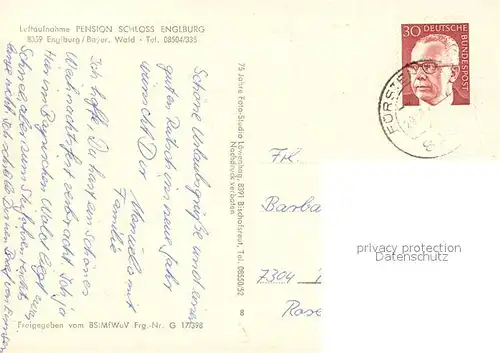 Luftaufnahme PENSION SCHLOSS ENGLBURG
8359 Englburg/Bayer. Wald - Tel. 08504/335
Schöne Urlaubsgrüße und einen
guten Rutsch ins neue Jahr
wünscht Dir
Manuela mit
Familie
Ich hoffe, Du hast ein schönes
Weihnachtsfest verbracht. Ich ja
Hier im Bayrischen Wald liegt
Schnee, aber zum Skifahren
Ich Deinen Brief von
Freigegeben vom BS:MfWuV Frg.-Nr. G 17/398
75 Jahre Foto-Studio Löwenhag, 8391 Bischofsreut, Tel. 08550/52
Nachdruck verboten
8
30 DEUTSCHE
BUNDESPOST
FÜRSTE
Frl.
Barba
7304
Rose
privacy protection
Ansichtskartenversand.com